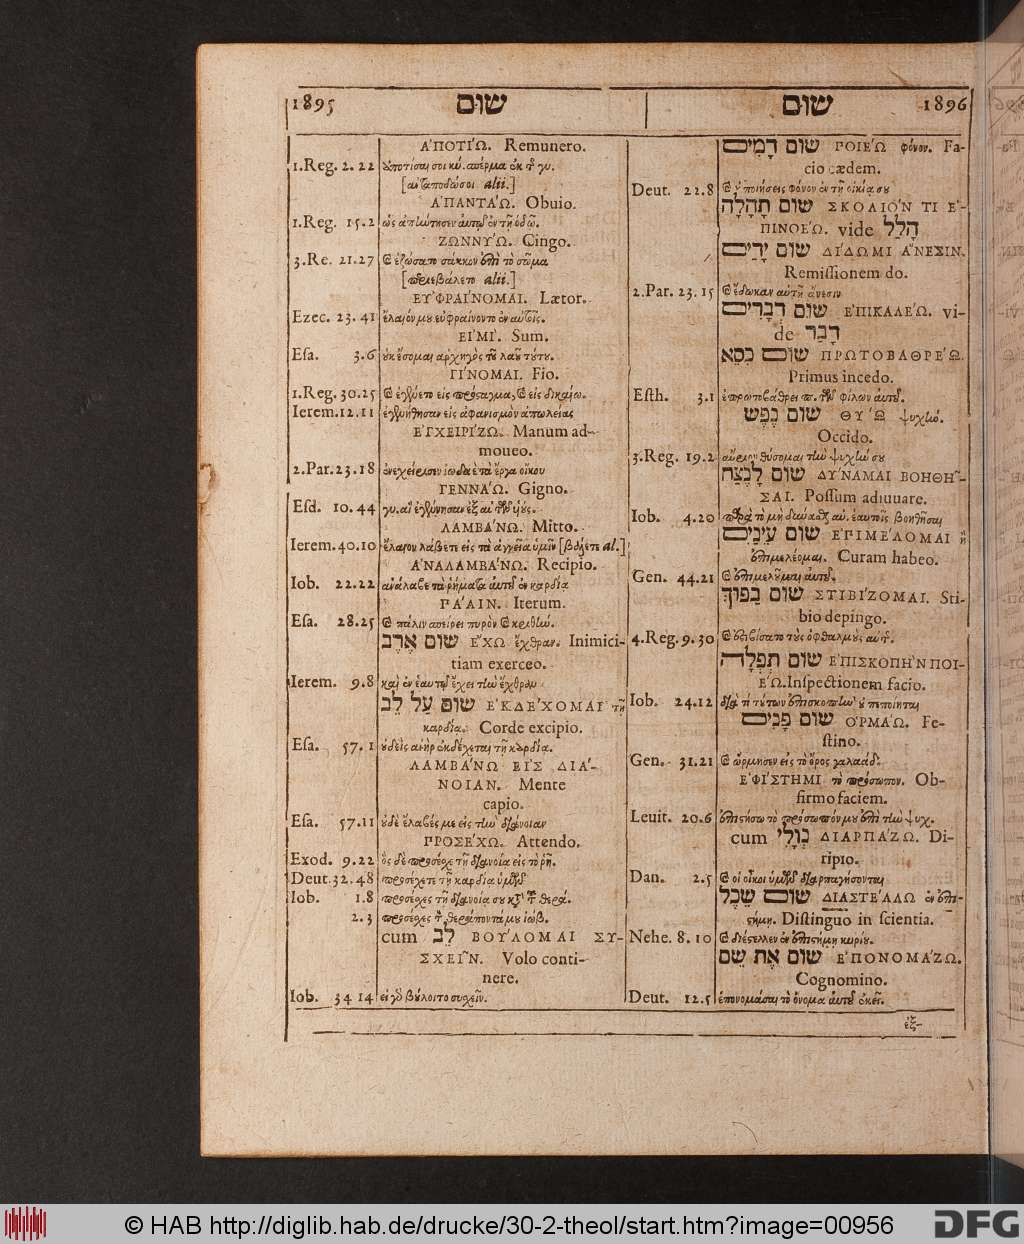 1895 שום
ἈΠΟΤΊΩ. Remunero.
1.Reg. 2. 22
[ἀνταποδώσοι alii.]
ἈΠΑΝΤΆΩ. Obuio.
1.Reg. 15.2 ὡς ἀπήντησεν αὐτῷ ἐν τῇ ὁδῷ.
ΖΩΝΝΎΩ. Cingo.
3.Re. 21.27 καὶ ἐζώσατο σάκκον ἐπὶ τὸ σῶμα
[περιεβάλετο alii.]
ΕΥ̓ΦΡΑΊΝΟΜΑΙ. Lætor.
Ezec. 23. 41 ἔλαιόν μου εὐφραίνοντο ἐν αὐτοῖς.
ΕἸΜΊ. Sum.
Esa. 3.6 οὐκ ἔσομαι ἀρχηγὸς τοῦ λαοῦ τούτου.
ΓΊΝΟΜΑΙ. Fio.
1.Reg. 30.25 καὶ ἐγένετο εἰς πρόσταγμα, καὶ εἰς δικαίω.
Ierem. 12. 11 ἐγενήθησαν εἰς ἀφανισμὸν ἀπωλείας
ΕΓΧΕΙΡΊΖΩ. Manum ad-
moueo.
2.Par. 23.18 ἐνεχείρισεν ἰωδαὲ τὰ ἔργα οἴκου
ΓΕΝΝΆΩ. Gigno.
Esd. 10. 44
ΛΑΜΒΆΝΩ. Mitto.
Ierem. 40.10 ἔλαιον λάβετε εἰς τὰ ἀγγεῖα ὑμῶν [βάλετε al.]
ἈΝΑΛΑΜΒΆΝΩ. Recipio.
Iob. 22.22 ἀνάλαβε τὰ ῥήματα αὐτοῦ ἐν καρδίᾳ
ΠΆΛΙΝ. Iterum.
Esa. 28.25 καὶ πάλιν σπείρει πυρὸν καὶ κριθήν.
שום אֶרֶב ἜΧΩ ἔχθραν. Inimici-
tiam exerceo.
Ierem. 9.8 καὶ ἐν ἑαυτῷ ἔχει τὴν ἔχθραν
שום עַל לֵב ἘΚΔΈΧΟΜΑΙ τῇ
καρδίᾳ. Corde excipio.
Esa. 57. 1 οὐδεὶς ἀνὴρ ἐκδέχεται τῇ καρδίᾳ.
ΛΑΜΒΆΝΩ ΕἸΣ ΔΙΆ-
ΝΟΙΑΝ. Mente
capio.
Esa. 57.11 οὐδὲ ἔλαβές με εἰς τὴν διάνοιαν
ΠΡΟΣΈΧΩ. Attendo.
Exod. 9.22 ὃς δὲ προσέσχε τῇ διανοίᾳ εἰς τὸ ῥῆ.
Deut. 32. 48 προσέχετε τῇ καρδίᾳ ὑμῶν
Iob. 1.8 προσέσχες τῇ διανοίᾳ σου
2. 3 προσέσχες τῷ θεράποντί μου ἰώβ.
cum לֵב ΒΟΎΛΟΜΑΙ ΣΥ-
ΣΧΕΙ͂Ν. Volo conti-
nere.
Iob. 34 14 εἰ γὰρ βούλοιτο συσχεῖν.
שום 1896
שום דָּמִים ΠΟΙΈΩ φόνον. Fa-
cio cædem.
Deut. 22.8 καὶ οὐ ποιήσεις φόνον ἐν τῇ οἰκίᾳ σου
שום תָּהֳלָה ΣΚΟΛΙΌΝ ΤΙ Ἐ-
ΠΙΝΟΈΩ. vide הָלַל
שום יָדַיִם ΔΊΔΩΜΙ ἌΝΕΣΙΝ.
Remissionem do.
2.Par. 23. 15 καὶ ἔδωκαν αὐτῇ ἄνεσιν
שום דְּבָרִים ἘΠΙΚΑΛΈΩ. vi-
de דָּבַר
שום כִּסֵּא ΠΡΩΤΟΒΑΘΡΈΩ.
Primus incedo.
Esth. 3.1
שום נֶפֶשׁ ΘΎΩ ψυχήν.
Occido.
3.Reg. 19.2 αὔριον θύσομαι τὴν ψυχήν σου
שום לָנֶצַח ΔΎΝΑΜΑΙ ΒΟΗΘΗ͂-
ΣΑΙ. Possum adiuuare.
Iob. 4.20 παρὰ τὸ μὴ δύνασθαι αὐ. ἑαυτοῖς βοηθῆσαι
שום עֵינַיִם ἘΠΙΜΈΛΟΜΑΙ ἢ
ἐπιμελέομαι. Curam habeo.
Gen. 44.21 καὶ ἐπιμελοῦμαι αὐτοῦ.
שום בַּפּוּךְ ΣΤΙΒΊΖΟΜΑΙ. Sti-
bio depingo.
4.Reg. 9. 30 καὶ ἐστιβίσατο τοὺς ὀφθαλμοὺς αὐτῆς.
שום תִּפְלָה ἘΠΙΣΚΟΠῊΝ ΠΟΙ-
ΈΩ. Inspectionem facio.
Iob. 24.12 διὰ τί τούτων ἐπισκοπὴν οὐ πεποίηται
שום פָּנִים ὉΡΜΆΩ. Fe-
stino.
Gen. 31.21 καὶ ὥρμησεν εἰς τὸ ὄρος γαλαάδ.
ἘΦΊΣΤΗΜΙ τὸ πρόσωπον. Ob-
firmo faciem.
Leuit. 20.6 ἐπιστήσω τὸ πρόσωπόν μου ἐπὶ τὴν ψυχ.
cum נְוָלִי ΔΙΑΡΠΆΖΩ. Di-
ripio.
Dan. 2.5 καὶ οἱ οἶκοι ὑμῶν διαρπαγήσονται
שום שֶׂכֶל ΔΙΑΣΤΈΛΛΩ ἐν ἐπι-
στήμῃ. Distinguo in scientia.
Nehe. 8. 10 καὶ διέστελλεν ἐν ἐπιστήμῃ κυρίου.
שום אֶת שֵׁם ἘΠΟΝΟΜΆΖΩ.
Cognomino.
Deut. 12.5 ἐπονομάσαι τὸ ὄνομα αὐτοῦ ἐκεῖ.
ἐξ-
© HAB http://diglib.hab.de/drucke/30-2-theol/start.htm?image=00956
DFG